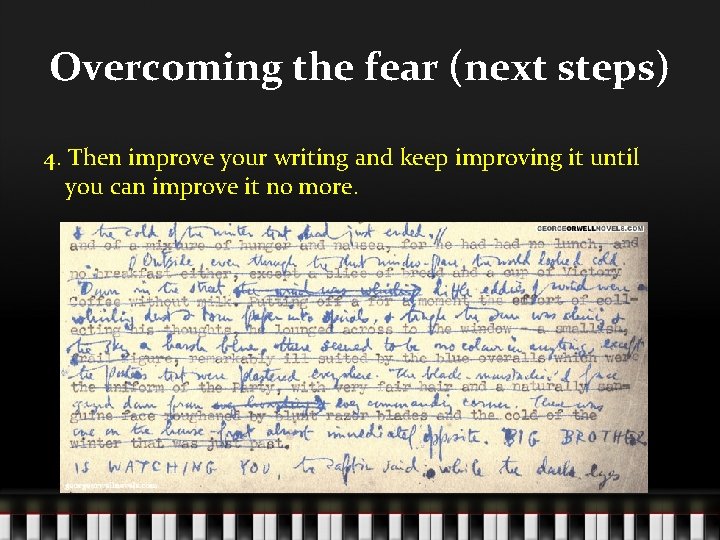 Overcoming the fear (next steps)
4. Then improve your writing and keep improving it until
you can improve it no more.
& the cold of the winter that had just ended.//
GEORGEORWELLNOVELS.COM
and of a mixture of hunger and nausea, for he had had no lunch, and
Outside, even through the shut window-pane, the world looked cold.
no breakfast either, except a slice of bread and a cup of Victory
Down in the street little eddies of wind were
Coffee without milk. Putting off a for a moment the effort of coll-
whirling dust & torn paper into spirals, & though the sun was shining &
ecting his thoughts, he lounged across to the window — a smallish,
the sky a harsh blue, there seemed to be no colour in anything except
frail figure, remarkably ill suited by the blue overalls which were
the posters that were plastered everywhere. The black-moustachio'd face
the uniform of the Party, with very fair hair and a naturally san-
gazed down from every commanding corner. There was
guine face roughened by blunt razor blades and the cold of the
one on the house-front almost immediately opposite. BIG BROTHER
winter that was just past.
IS WATCHING YOU, the caption said, while the dark eyes
georgeorwellnovels.com